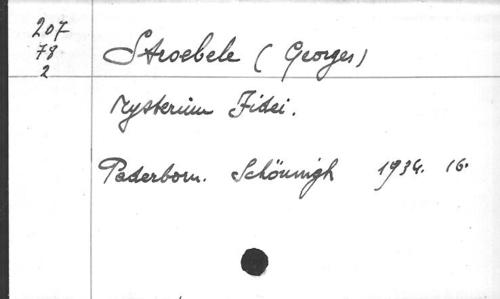 207
78
2
Stroebele (Georges)
Mysterium Fidei.
Paderborn. Schöningh 1934. 16.